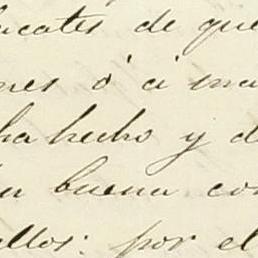 ucates de que
nes ó á ma
ha hecho y d
su buena con
ellos: por el